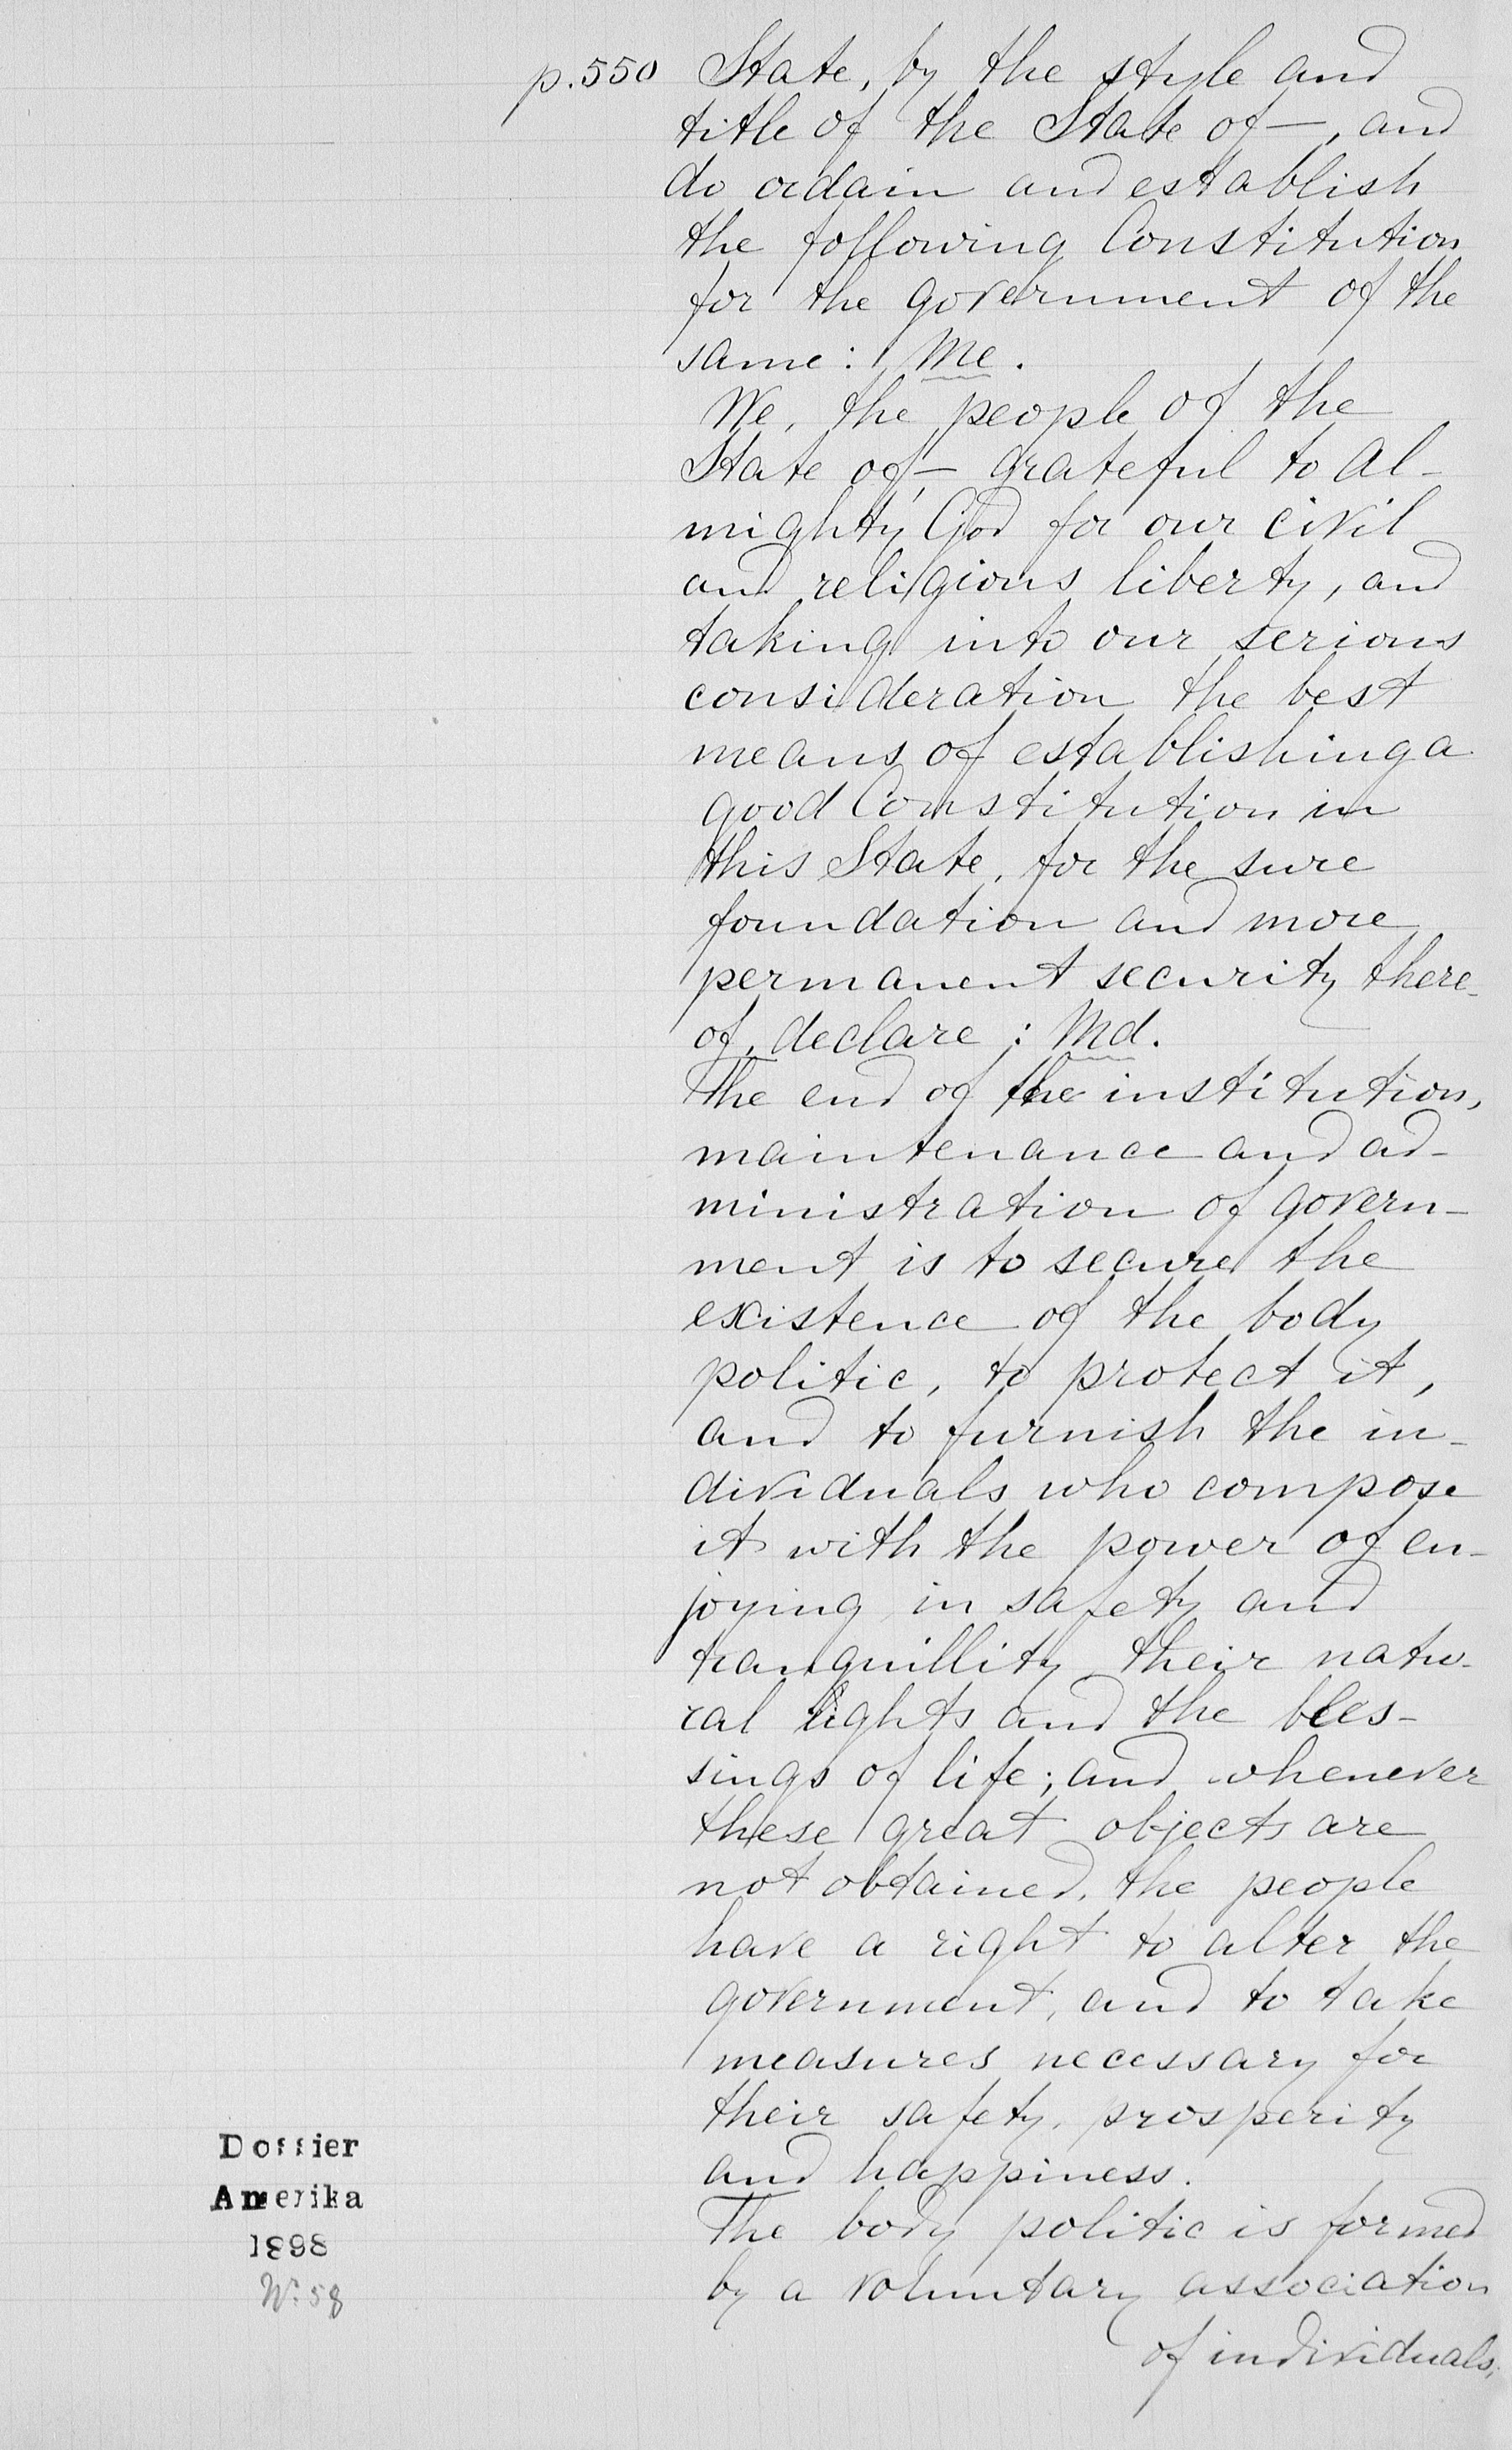 p. 550 State, by the style and
title of the State of —, and
do ordain and establish
the following Constitution
for the government of the
same: Me.
We, the people of the
State of — grateful to Al-
mighty God for our civil
and religious liberty, and
taking into our serious
consideration the best
means of establishing a
good Constitution in
this State, for the sure
foundation and more
permanent security there-
of, declare: Md.
The end of the institution,
maintenance and ad-
ministration of govern-
ment is to secure the
existence of the body
politic, to protect it,
and to furnish the in-
dividuals who compose
it with the power of en-
joying in safety and
tranquillity their natu-
ral rights and the bles-
sings of life; and whenever
these great objects are
not obtained, the people
have a right to alter the
government, and to take
measures necessary for
their safety, prosperity
and happiness.
The body politic is formed
by a voluntary association
of individuals,
Dossier
Amerika
1898
No. 58